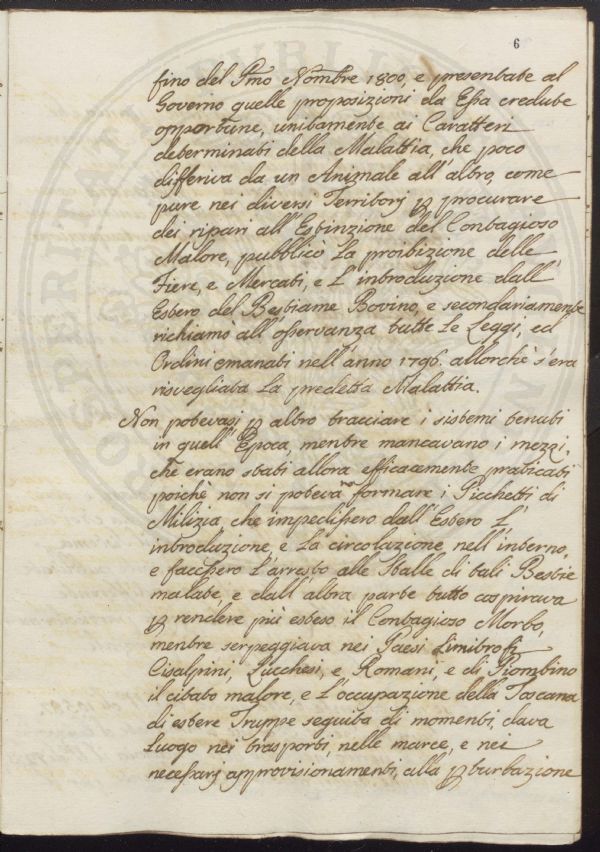 6
fino del Pmo Nombre 1800, e presentate al
Governo quelle proposizioni da Essa credute
opportune, unitamente ai Caratteri
determinati della Malattia, che poco
differiva da un Animale all'altro, come
pure nei diversi Territorj p procurare
dei ripari all'Estinzione del Contagioso
Malore, pubblicò La proibizione delle
Fiere, e Mercati, e L'introduzione dall'
Estero del Bestiame Bovino, e secondariamente
richiamò all'osservanza tutte Le Leggi, ed
Ordini emanati nell'anno 1796. allorchè s'era
risvegliata La predetta Malattia.
Non potevasi p altro tracciare i sistemi tenuti
in quell'Epoca, mentre mancavano i mezzi,
che erano stati allora efficacemente praticati
poichè non si poteva no formare i Picchetti di
Milizia che impedissero dall'Estero L'
introduzione, e La circolazione nell'interno,
e facessero L'arresto alle Stalle di tali Bestie
malate, e dall'altra parte tutto cospirava
p rendere più esteso il Contagioso Morbo,
mentre serpeggiava nei Paesi Limitrofi
Cisalpini, Lucchesi, e Romani, e di Piombino
il citato malore, e L'occupazione della Toscana
di estere Truppe seguita di momenti, dava
Luogo nei trasporti, nelle marce, e nei
necessarj approvisionamenti, alla pturbazione
PROSPERITATI PUBLICAE